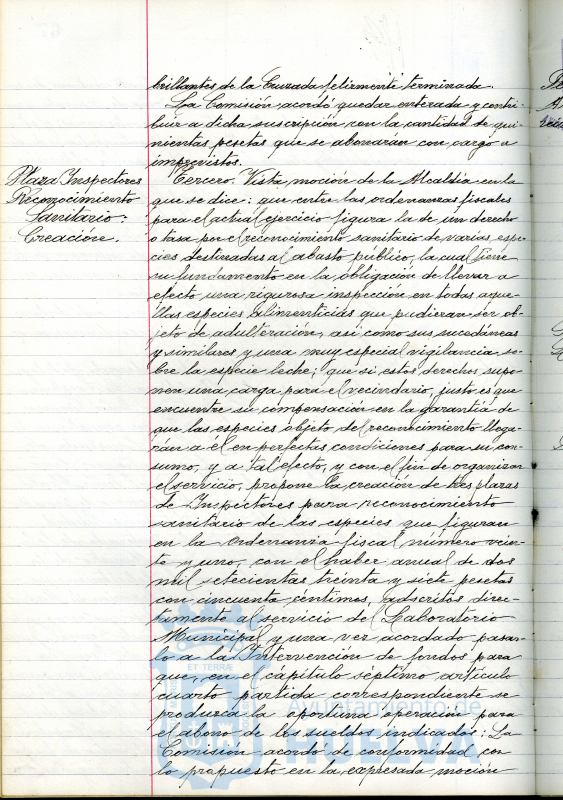 brillantes de la Cruzada felizmente terminada.
La Comisión acordó quedar enterada y contri-
buir a dicha suscripción con la cantidad de qui-
nientas pesetas que se abonarán con cargo a
imprevistos.
Plaza Inspectores
Reconocimiento
Sanitario:
Creación.
Tercero. Vista moción de la Alcaldía en la
que se dice: que entre las ordenanzas fiscales
para el actual ejercicio figura la de un derecho
o tasa por el reconocimiento sanitario de varias espe-
cies destinadas al abasto público, la cual tiene
su fundamento en la obligación de llevar a
efecto una rigurosa inspección en todas aque-
llas especies alimenticias que pudieran ser ob-
jeto de adulteración, así como sus sucedáneas
y similares y una muy especial vigilancia so-
bre la especie leche; que si estos derechos supo-
nen una carga para el vecindario, justo es que
encuentre su compensación en la garantía de
que las especies objeto del reconocimiento llega-
rán a él en perfectas condiciones para su con-
sumo, y a tal efecto, y con el fin de organizar
el servicio, propone la creación de tres plazas
de Inspectores para reconocimiento
sanitario de las especies que figuran
en la ordenanza fiscal número vein-
te y uno, con el haber anual de dos
mil setecientas treinta y siete pesetas
con cincuenta céntimos, adscritos direc-
tamente al servicio del Laboratorio
Municipal y una vez acordado pasar-
lo a la Intervención de fondos para
que, en el capítulo séptimo artículo
cuarto partida correspondiente se
produzca la oportuna operación para
el abono de los sueldos indicados: La
Comisión acordó de conformidad con
lo propuesto en la expresada moción
ET TERRÆ
Ayuntamiento de
HUELVA